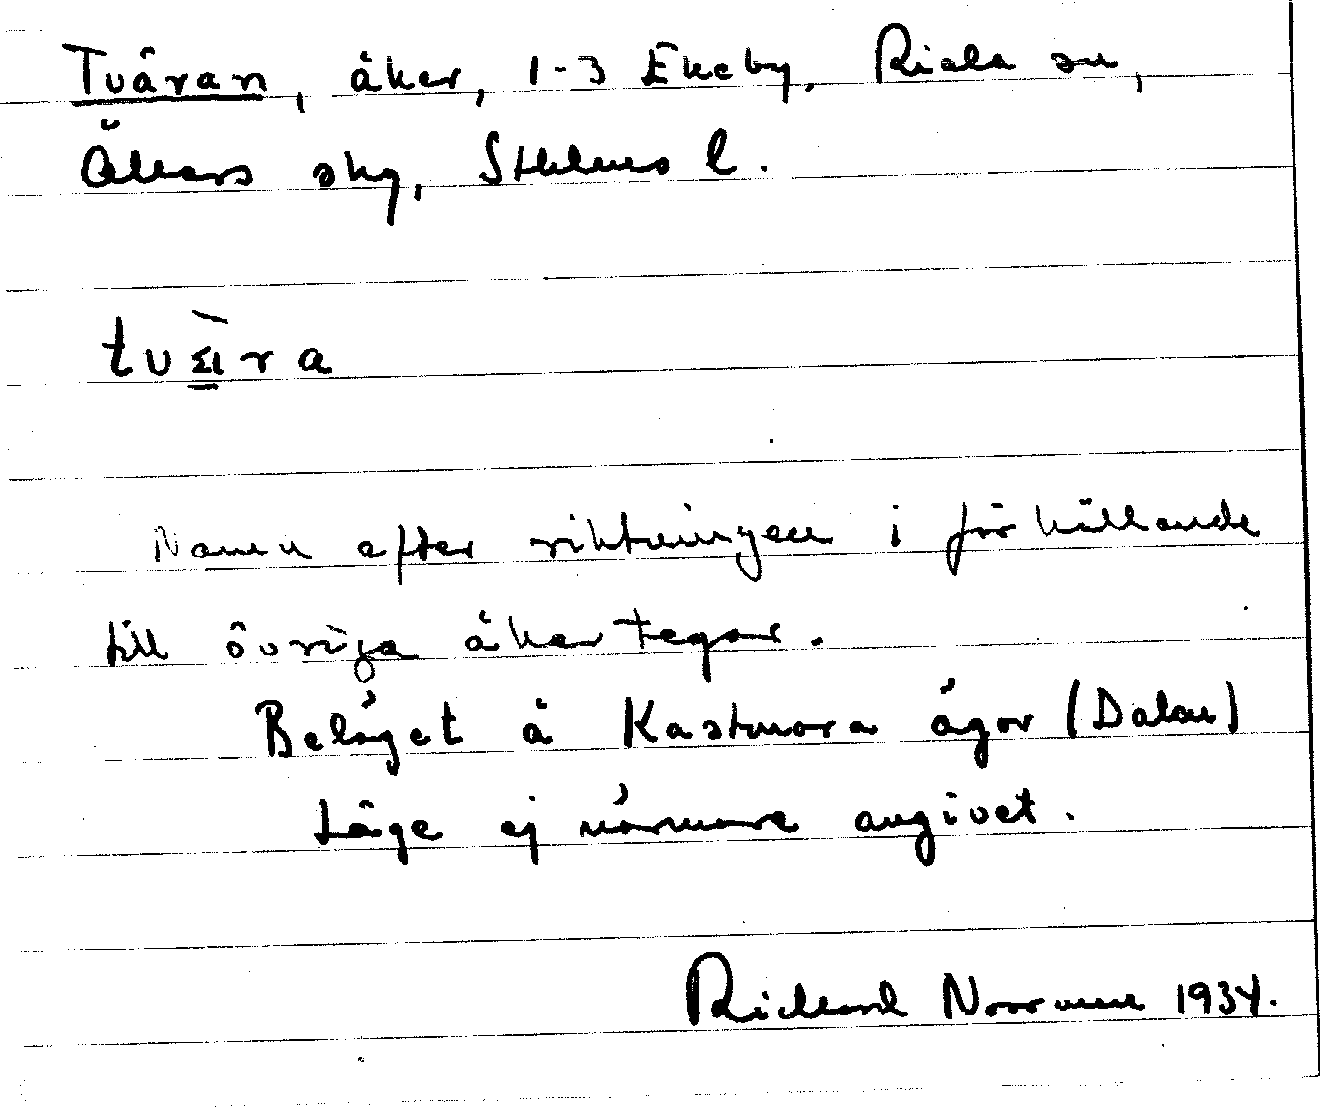 Tväran, åker, 1-3 Ekeby, Riala sn,
Åkers skg, Sthlms l.
tvära
Namn efter riktningen i förhållande
till övriga åkertegar.
Beläget å Kastmora ägor (Dalen)
Läge ej närmare angivet.
Richard Norrman 1934.